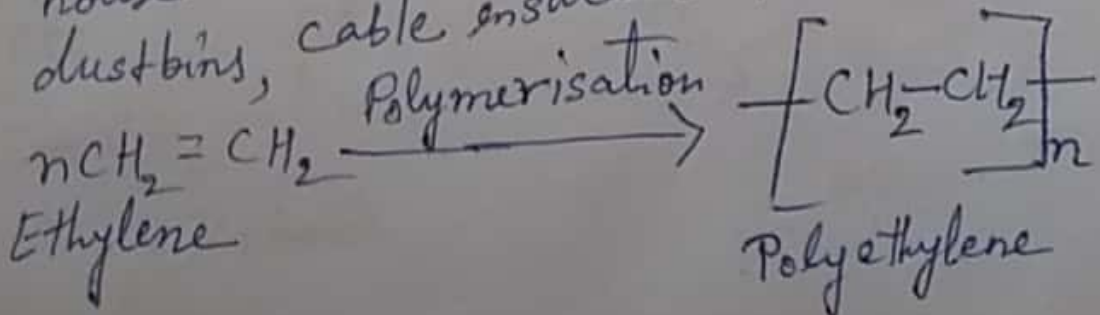 dustbins, cable
nCH₂ = CH₂ Polymerisation → [CH₂-CH₂]n
Ethylene Polyethylene